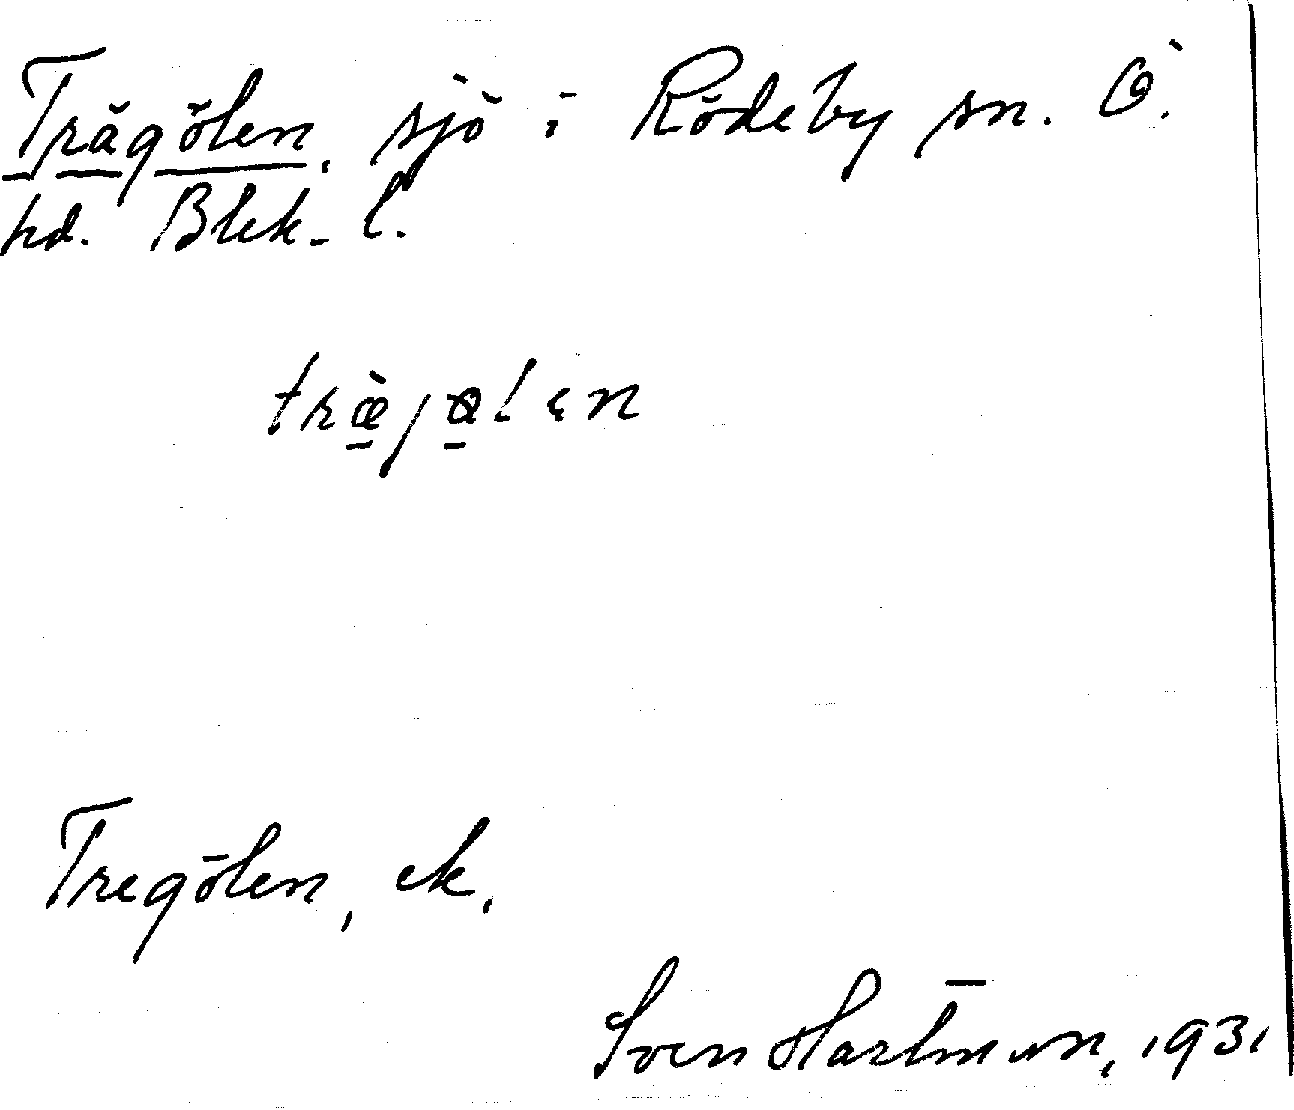 Trägölen, sjö i Rödeby sn. Ö.
hd. Blek. l.
Tregölen, ek.
Sven Hartman, 1931